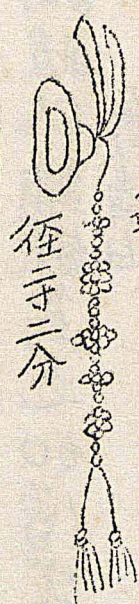 径二寸二分